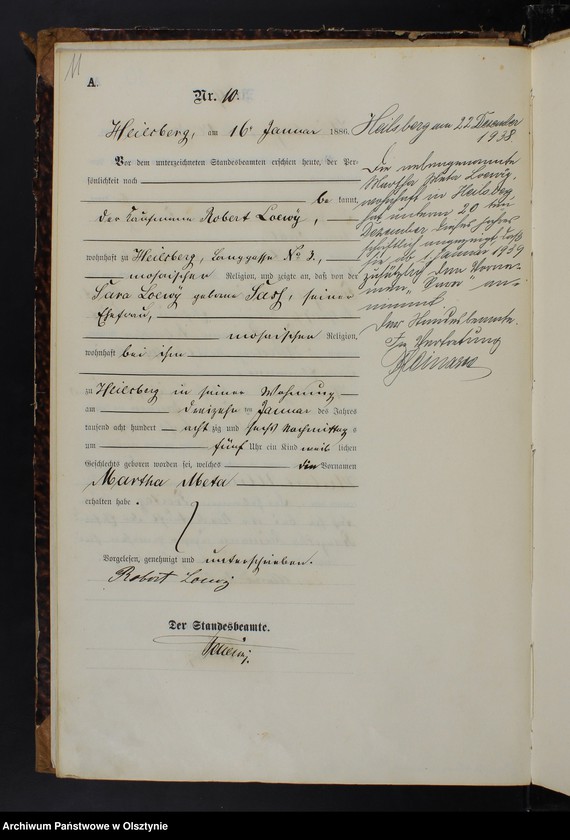 11
A.
Nr. 10.
Heilsberg, am 16 Januar 1886.
Vor dem unterzeichneten Standesbeamten erschien heute, der Per-
sönlichkeit nach
be kannt,
der Kaufmann Robert Loewy,
wohnhaft zu Heilsberg, Langgasse No
mosaischer Religion, und zeigte an, daß von der
Sara Loewy geborne seiner
Ehefrau,
mosaischen Religion,
wohnhaft bei ihm
zu Heilsberg in seiner Wohnung
am dreizehn ten Januar des Jahres
tausend acht hundert acht zig und sechs Nachmittag s
um fünf Uhr ein Kind weib lichen
Geschlechts geboren worden sei, welches die Vornamen
Martha Meta
erhalten habe.
Vorgelesen, genehmigt und unterschrieben.
Robert Loewy
Der Standesbeamte.
Heilsberg am 22 Dezember
1938.
Die nebengenannte
Martha Meta Loewy,
wohnhaft in Heilsberg
hat unterm 20 ten
Dezember dieses Jahres
schriftlich angezeigt, daß
sie ab 1 Januar 1939
zusätzlich den Vorna-
men „Sara" an-
nimmt.
Der Standesbeamte.
In Vertretung
Archiwum Państwowe w Olsztynie